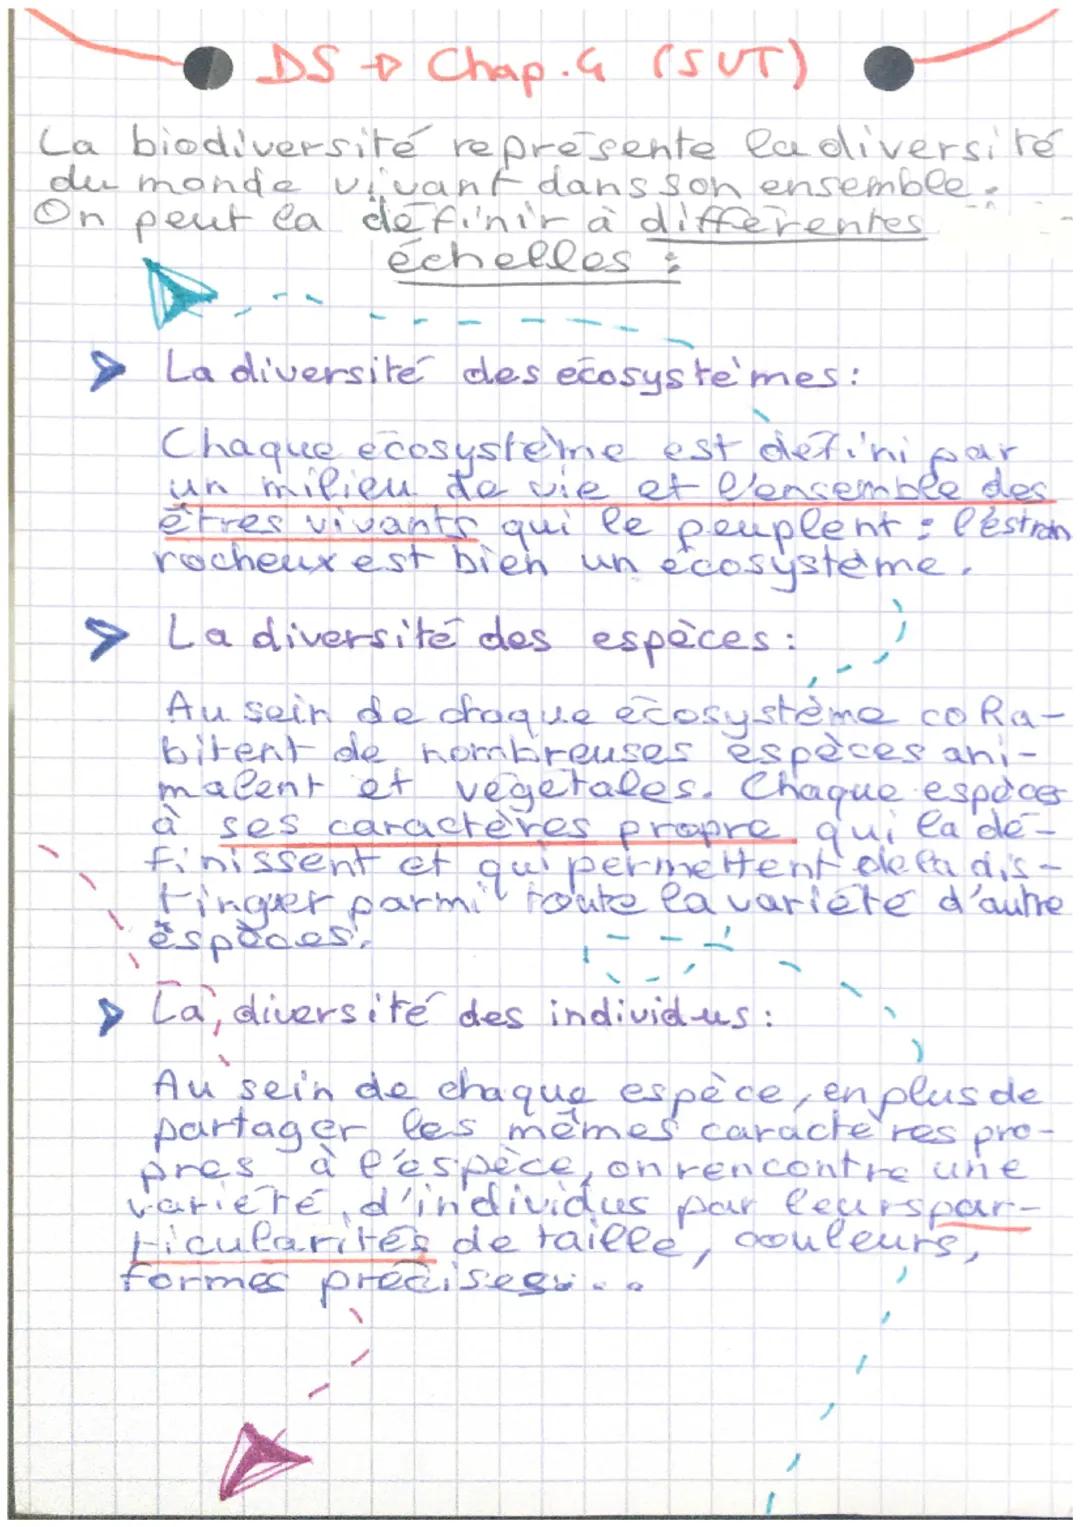 DS → Chap. 4 (SVT)
La biodiversité représente la diversité
du monde vivant dans son ensemble.
On peut la définir à différentes
échelles :
> La diversité des écosystèmes :
Chaque écosystème est défini par
un milieu de vie et l'ensemble des
êtres vivants qui le peuplent : l'éstran
rocheux est bien un écosystème.
> La diversité des espèces :
Au sein de chaque écosystème coha-
bitent de nombreuses espèces ani-
malent et végétales. Chaque espèces
à ses caractères propre qui la dé-
finissent et qui permettent de la dis-
tinguer parmi toute la variété d'autre
éspèces.
> La diversité des individus :
Au sein de chaque espèce, en plus de
partager les mêmes caractères pro-
pres à l'espèce, on rencontre une
variété d'individus par leurs par-
ticularités de taille, couleurs,
formes précises...